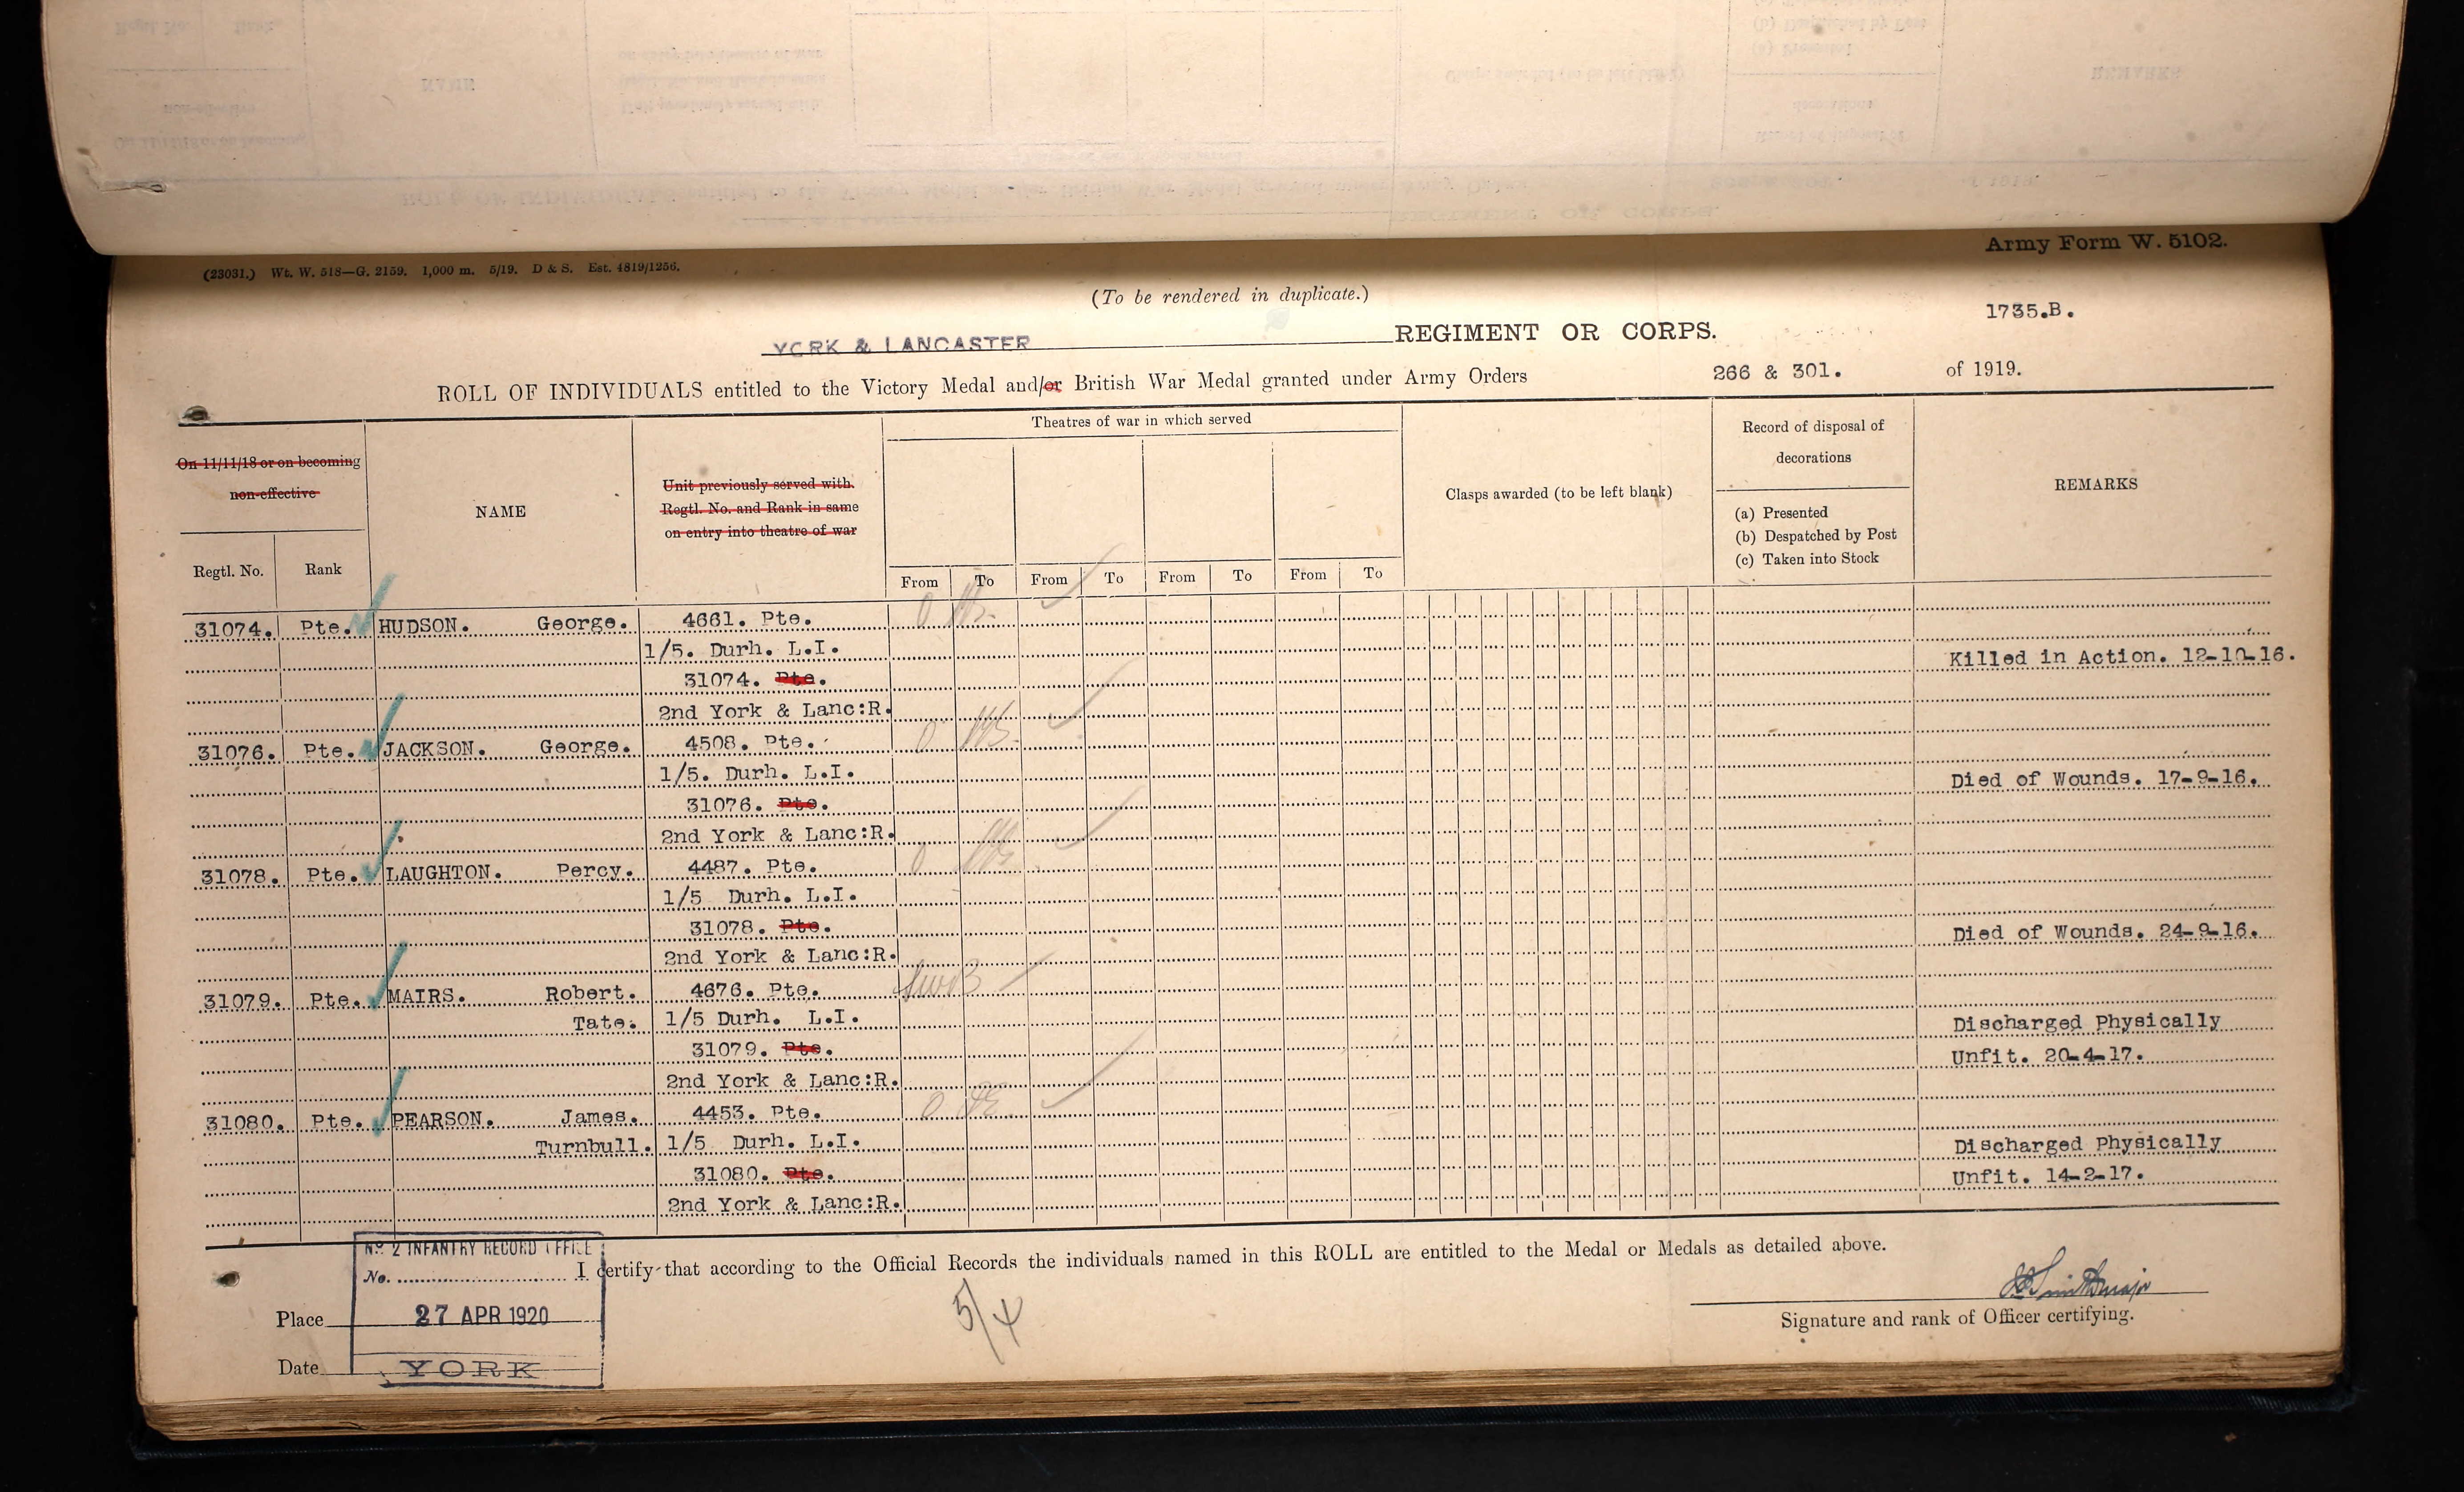 Army Form W. 5102.
(23031.) Wt. W. 518—G. 2159. 1,000 m. 5/19. D & S. Est. 4819/1256.
(To be rendered in duplicate.)
1735.B.
YORK & LANCASTER REGIMENT OR CORPS.
ROLL OF INDIVIDUALS entitled to the Victory Medal and/or British War Medal granted under Army Orders 266 & 301. of 1919.
On 11/11/18 or on becoming
non-effective
Regtl. No. Rank
NAME
Unit previously served with.
Regtl. No. and Rank in same
on entry into theatre of war
Theatres of war in which served
From To From To From To From To
Clasps awarded (to be left blank)
Record of disposal of
decorations
(a) Presented
(b) Despatched by Post
(c) Taken into Stock
REMARKS
31074. Pte. HUDSON. George. 4661. Pte.
1/5. Durh. L.I.
Killed in Action. 12-10-16.
31074. Pte.
2nd York & Lanc:R.
31076. Pte. JACKSON. George. 4508. Pte.
1/5. Durh. L.I.
Died of Wounds. 17-9-16.
31076. Pte.
2nd York & Lanc:R.
31078. Pte. LAUGHTON. Percy. 4487. Pte.
1/5 Durh. L.I.
31078. Pte.
Died of Wounds. 24-9-16.
2nd York & Lanc:R.
31079. Pte. MAIRS. Robert. 4676. Pte.
Tate. 1/5 Durh. L.I.
Discharged Physically
31079. Pte.
Unfit. 20-4-17.
2nd York & Lanc:R.
31080. Pte. PEARSON. James. 4453. Pte.
Turnbull. 1/5 Durh. L.I.
Discharged Physically
31080. Pte.
Unfit. 14-2-17.
2nd York & Lanc:R.
No. 2 INFANTRY RECORD OFFICE
No.
I certify that according to the Official Records the individuals named in this ROLL are entitled to the Medal or Medals as detailed above.
5/4
Place 27 APR 1920
Signature and rank of Officer certifying.
Date YORK